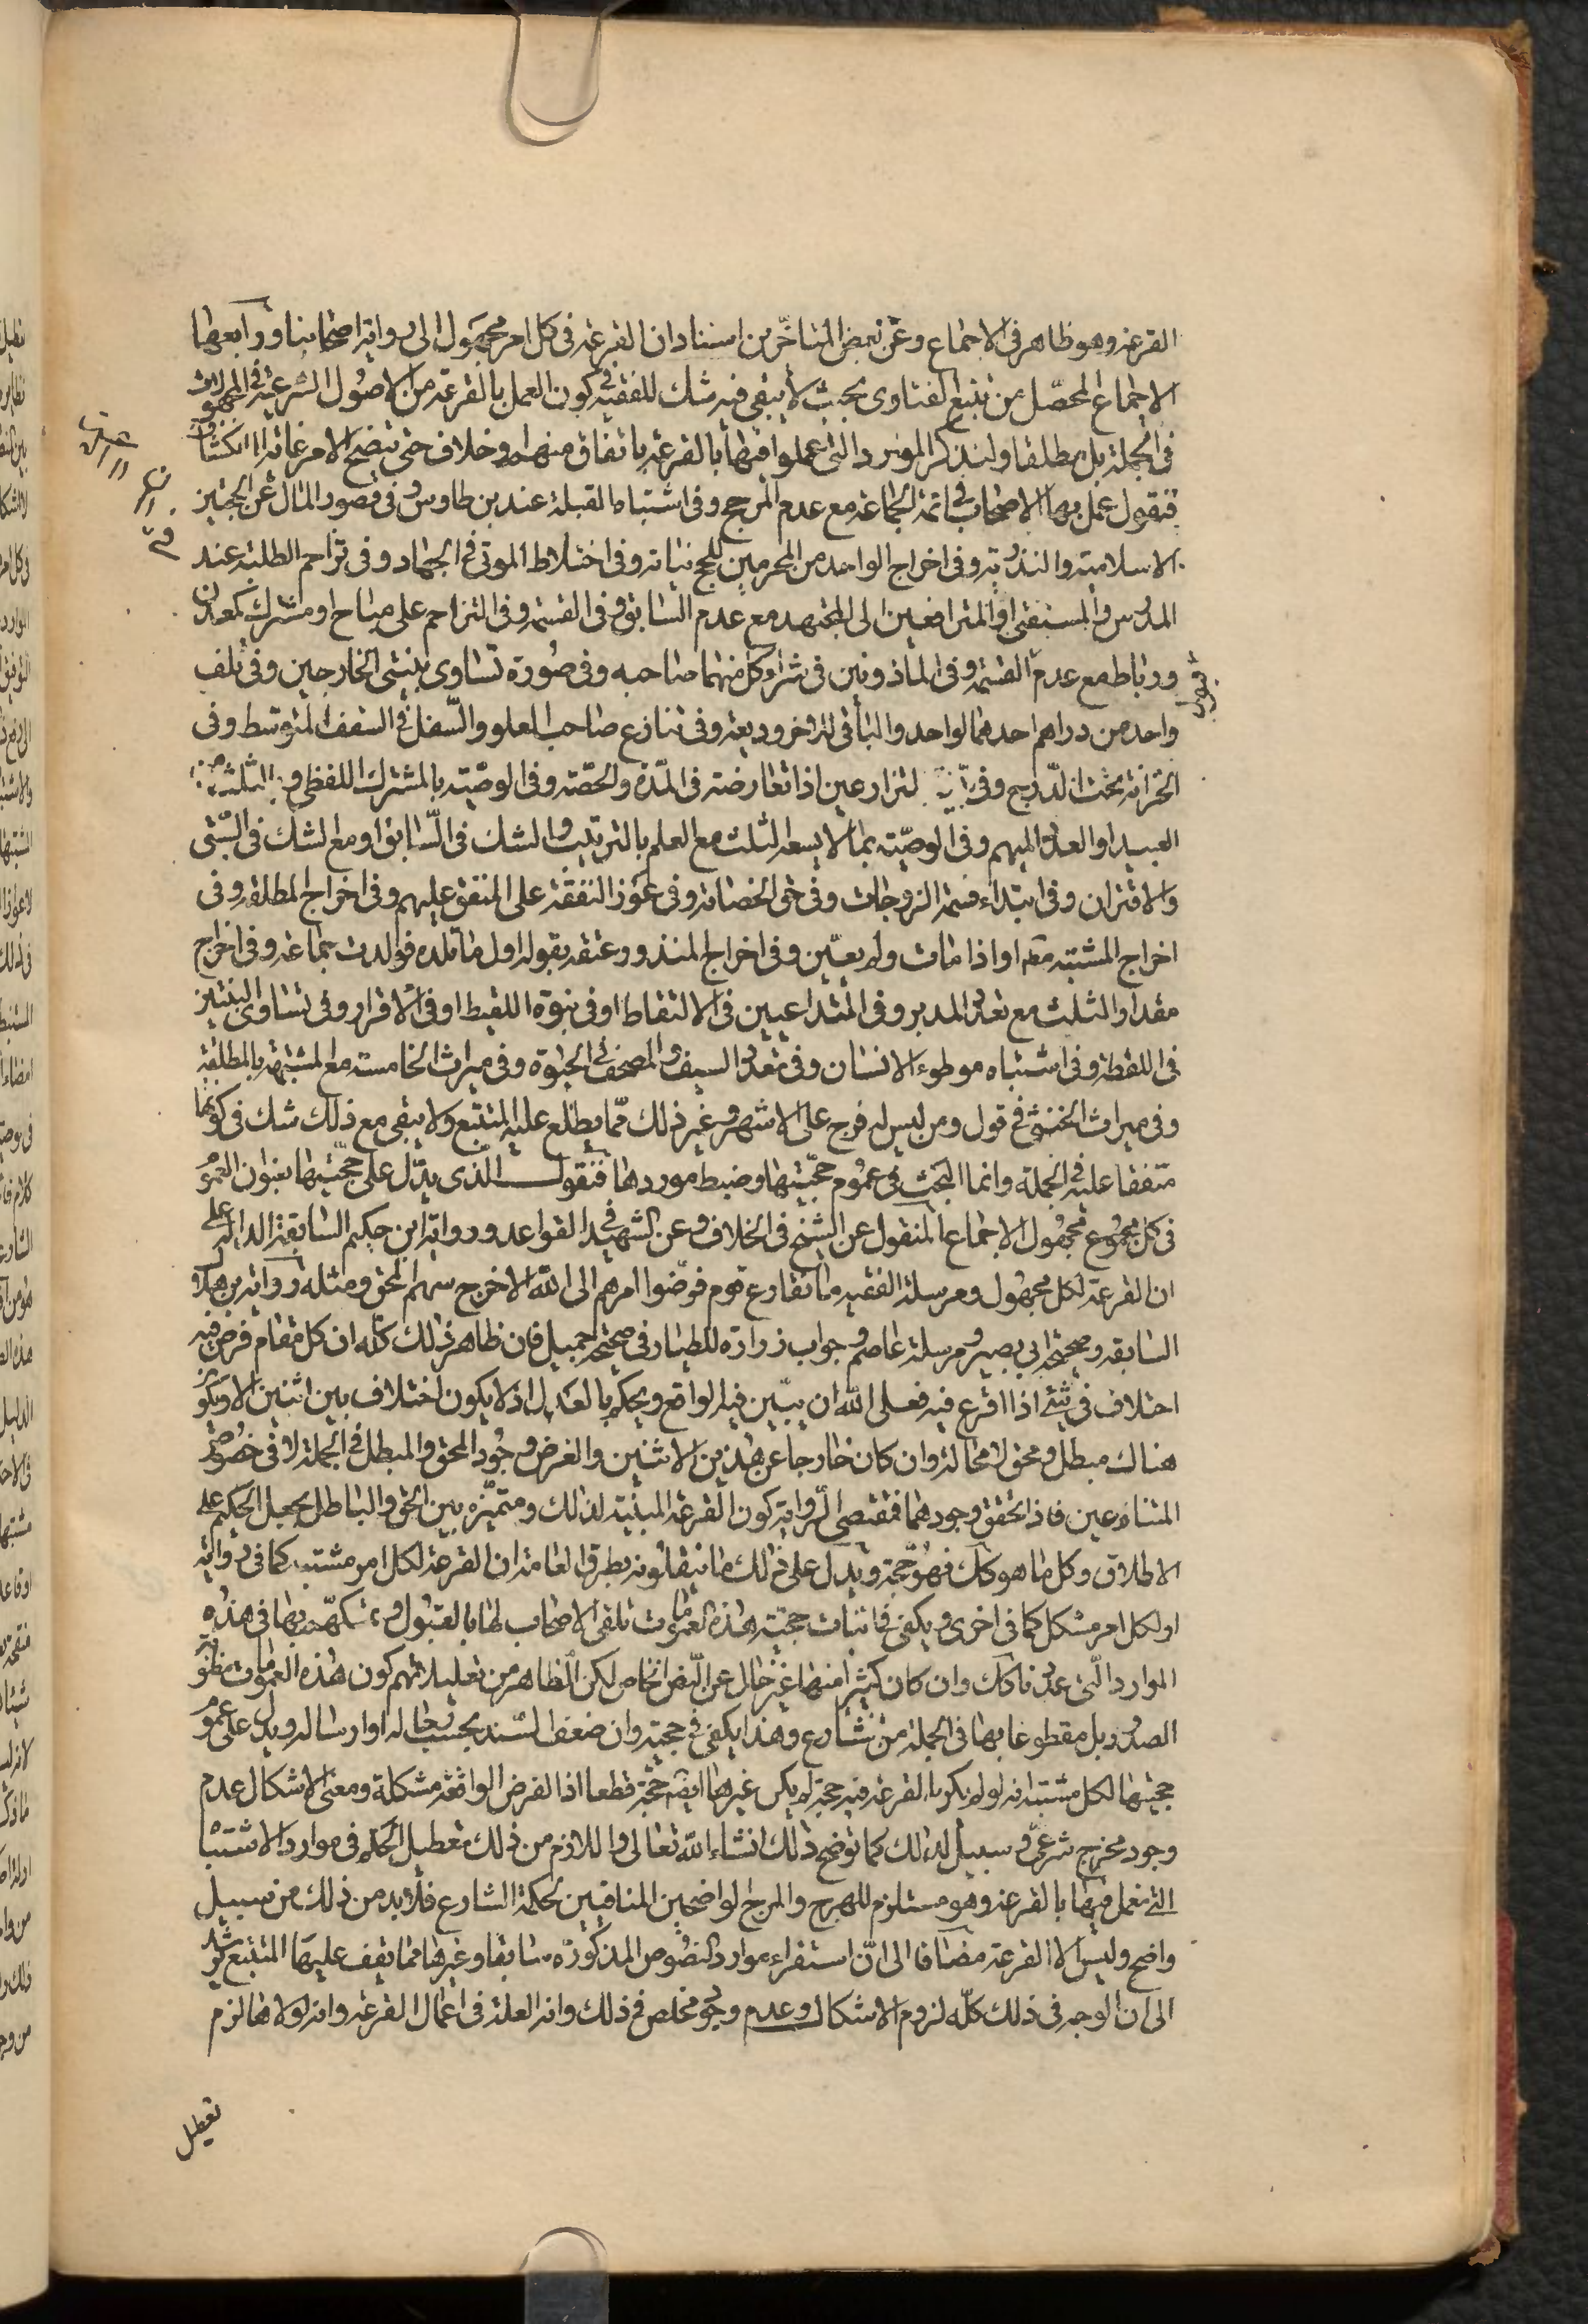 القرعة وهو ظاهر فى الاجماع وعن بعض المتاخّرين اسناد ان القرعة فى كل امر مجهول الى رواية اصحابنا ورابعها
الاجماع المحصّل من تتبع الفتاوى بحيث لا يبقى فيه شك للفقيه فى كون العمل بالقرعة من الاصول الشرعية فى المجهولات
فى الجملة بل مطلقا ولنذكر الموارد التى عملوا فيها بالقرعة باتفاق منهم او خلاف حتى يتضح الامر غاية الانكشاف
فنقول عمل بها الاصحاب فى ائمة الجماعة مع عدم المرجح وفى اشتباه القبلة عند بن طاوس وفى قصور المال عن الحجتين
الاسلامية والنذرية وفى اخراج الواحد من المحرمين للحج نيابة وفى اختلاط الموتى فى الجهاد وفى تزاحم الطلبة عند
المدرس والمستفتى او المترافعين الى المجتهد مع عدم السابق وفى القسمة وفى التزاحم على مباح او مشترك كمعدن
ورباط مع عدم القسمة وفى الماذونين فى شراء كل منهما صاحبه وفى صورة تساوى بينتى الخارجين وفى تلف
واحد من دراهم احدهما لواحد والباقى لاخر وديعة وفى تنازع صاحب العلو والسّفل فى السقف المتوسط وفى
الخزانة تحت الدّرج وفى المتزارعين اذا تعارضت فى المدّة والحصّة وفى الوصيّة بالمشترك اللفظى و
العبيد او العدد المبهم وفى الوصيّة بما لا يسعه الثلث مع العلم بالترتيب والشك فى السّابق او مع الشك فى السّبق
والاقتران وفى ابتداء قسمة الزوجات وفى حق الحضانة وفى عوز النفقة على المنفق عليهم وفى اخراج المطلقة وفى
اخراج المشتبه او اذا مات ولم يعيّن وفى اخراج المنذور عتقه بقوله اول ما تلده فولدت جماعة وفى اخراج
مقدار الثلث مع تعدد المدبر وفى المتداعيين فى الالتقاط او فى بنوّة اللقيط او فى الاقرار وفى تساوى البينتين
فى اللقطة وفى اشتباه موطوء الانسان وفى تعدد السيف والمصحف فى الحبوة وفى ميراث الخامسة مع المشتبهة بالمطلقة
وفى ميراث الخنثى فى قول ومن ليس له فرج على الاشهر وغير ذلك ممّا يطلع عليه المتتبع ولا يبقى مع ذلك شك فى كونها
متفقا عليه فى الجملة وانما البحث فى عموم حجّيتها وضبط موردها فنقول الذى يدّل على حجّيتها بعنوان العموم
فى كل مجهول الاجماع المنقول عن الشيخ فى الخلاف وعن الشهيد فى القواعد ورواية ابن حكيم السابقة الدالة على
ان القرعة لكل مجهول ومرسلة الفقيه ما تقارع قوم فوضوا امرهم الى الله الا خرج سهم المحق ومثله رواية
السابقة وصحيحة ابى بصير ومرسلة عاصم وجواب زرارة للطيار فى صحيحة جميل فان ظاهر ذلك كله ان كل مقام فرض فيه
اختلاف فى شئ اذا اقرع فيه فعلى الله ان يبيّن فيه الواقع ويحكم بالعدل اذ لا يكون اختلاف بين اثنين الا ويكون
هناك مبطل ومحق لا محالة وان كان خارجا عن هذين الاثنين والغرض وجود المحق والمبطل فى الجملة لا فى خصوص
المتنازعين فاذا تحقق وجودهما فمقتضى الرواية كون القرعة المبنية لذلك ومتميّزه بين الحق والباطل بجعل الحكيم على
الاطلاق وكل ما هو كك فهو حجة ويدل على ذلك ما ينقلونه بطرق العامة ان القرعة لكل امر مشتبه كما فى رواية
او لكل امر مشكل كما فى اخرى ويكفى فى اثبات حجيّة هذه العمومات تلقى الاصحاب لها بالقبول وتمسكهم بها فى هذه
الموارد الّتى عددناها لك وان كان كثير منها غير خال عن النّص الخاص لكن الظاهر من تعليلاتهم كون هذه العمومات مظنون
الصدور بل مقطوعا بها فى الجملة من الشارع وهذا يكفى فى حجية وان ضعف السّند بحسب رجاله او ارساله ويدل على عموم
حجيتها لكل مشتبه انه لو لم يكن القرعة فيه حجة لم يكن غيرها ايضا حجّة قطعا اذا الفرض الواقعة مشكلة ومعنى الاشكال عدم
وجود مخرج شرعى وسبيل لذلك كما توضح ذلك انشاء الله تعالى واللازم من ذلك تعطيل الحكم فى موارد الاشتباه
التى نعمل فيها بالقرعة وهو مستلزم للهرج والمرج الواضحين المنافيين لحكمة الشارع فلا بد من ذلك من سبيل
واضح وليس الا القرعة مضافا الى انّ استقراء موارد النصوص المذكورة سابقا وغيرها مما يقف عليها المتتبع يرشد
الى ان الوجه فى ذلك كلّه لزوم الاشكال وعدم وجود مخلص فى ذلك وانه العلة فى اعمال القرعة وانه لولاها لزم
تعطيل